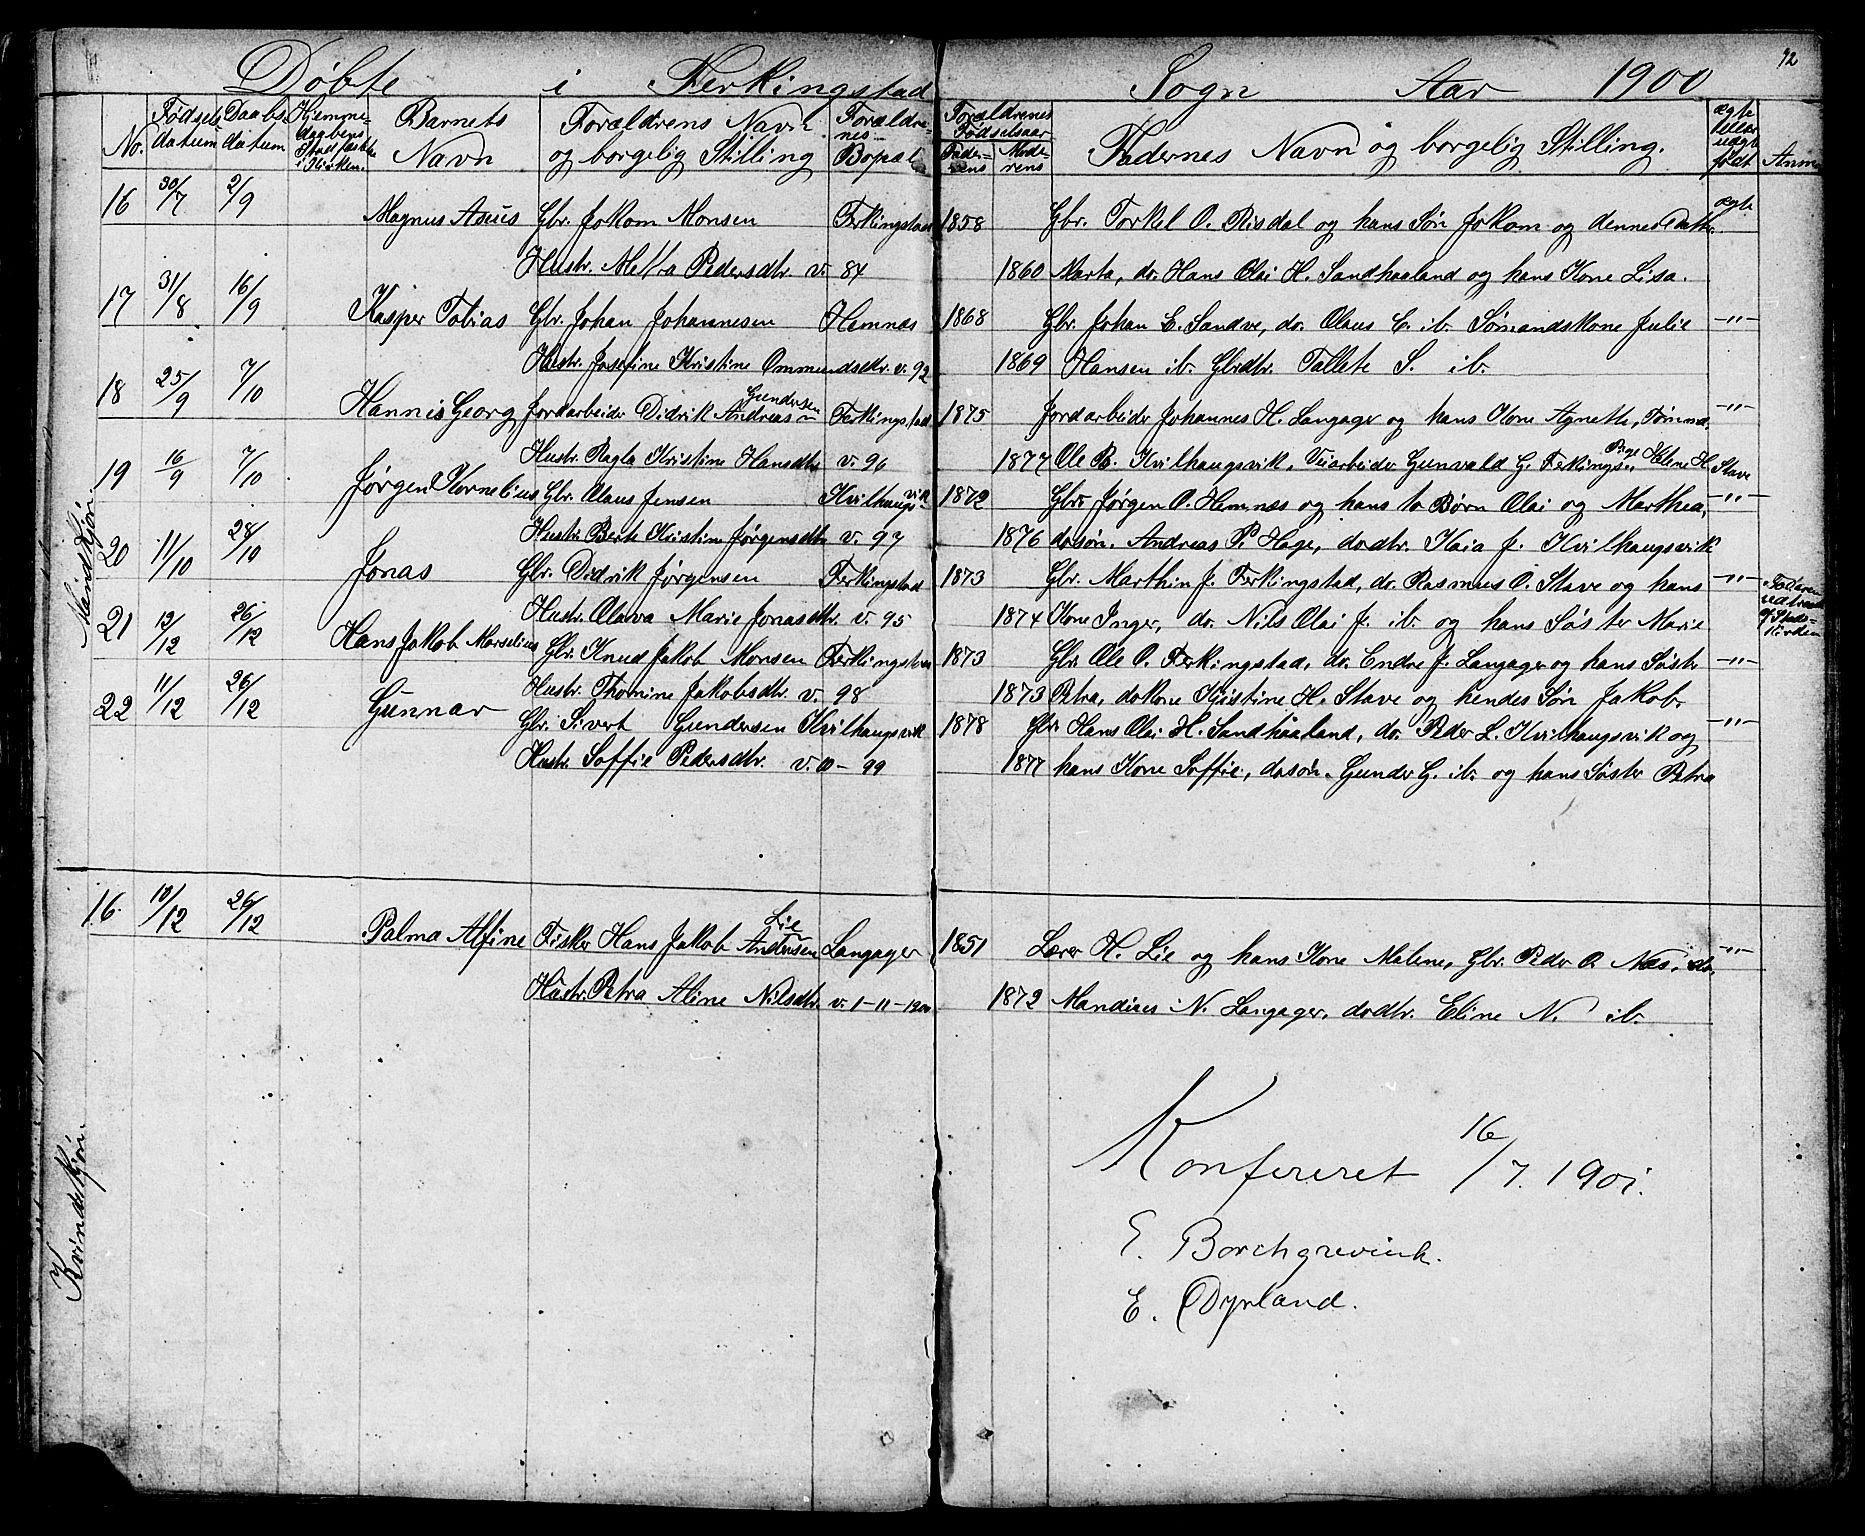 92
Døbte i Ferkingstad Sogn Aar 1900
No. Fødsels datum Daabs datum Hjemme- daabens Stadfæstelse i Kirken. Barnets Navn Forældrens Navn og borgelig Stilling Forældre- nes Bopæl Forældrenes Fødselsaar Fade- rens Mode- rens Fadernes Navn og borgelig Stilling. ægte eller uægt. født. Anm
Mandkjøn.
16 30/7 2/9 Magnus Asius Gbr. Jokom Monsen Ferkingstad 1858 Gbr. Torkel O. Risdal og hans Søn Jokom og dennes Datter ægte
Hustr. Metta Pedersdtr. v. 84 1860 Marta, do. Hans Olai H. Sandhaaland og hans Kone Lisa.
17 31/8 16/9 Kasper Tobias Gbr. Johan Johannesen Hemnes 1868 Gbr. Johan E. Sandve, do. Olaus E. ib. Sømandskone Julie -"-
Hustr. Josefine Kristine Ommundsdtr. v. 92 1869 Hansen ib. Gbrdtr. Tallete S. ib.
18 25/9 7/10 Hannis Georg Jordarbeider Didrik Andreas Gundersen Ferkingstad 1875 Jordarbeider Johannes H. Langager og hans Kone Agnethe, Tømmd. -"-
Hustr. Ragla Kristine Hansdtr v. 96 1877 Ole B. Kvilhaugsvik, Veiarbeider Gunvald G. Ferkings., Pige Helene H. Stave
19 16/9 7/10 Jørgen Kornelius Gbr. Olaus Jensen Kvilhaugsvik 1872 Gbr. Jørgen O. Hemnæs og hans to Børn Olai og Marthea, -"-
Hustr. Berte Kristine Jørgensdtr v. 97 1876 dosøn. Andreas P. Hage, dodtr. Kaia J. Kvilhaugsvik
20 11/10 28/10 Jonas Gbr. Didrik Jørgensen Ferkingstad 1873 Gbr. Marthin J. Ferkingstad, do. Rasmus O. Stave og hans -"- Faderen
Hustr. Olava Marie Jonasdtr. v. 95 1874 Kone Inger, do. Nils Olai J. ib. og hans Søster Marie
21 13/12 26/12 Hans Jakob Marselius Gbr. Knud Jakob Monsen Ferkingstad 1873 Gbr. Ole O. Ferkingstad, do. Endre J. Langager og hans Søster -"-
Hustr. Thomine Jakobsdtr. v. 98 1873 Petra, dokone Kristine H. Stave og hendes Søn Jakob.
22 11/12 26/12 Gunnar Gbr. Sivert Gundersen Kvilhaugsvik 1878 Gbr. Hans Olai H. Sandhåaland, do. Peder L. Kvilhaugsvik og -"-
Hustr. Soffie Pedersdtr. v. 10-99 1877 hans Kone Soffie, dosøn. Gunder G. ib. og hans Søster Petra
Kvindekjøn.
16. 10/12 26/12 Palma Alfine Fisker Hans Jakob Andersen Lie Langager 1851 Lærer H. Lie og hans Kone Malene, Gbr. Peder O. Næs, do. -"-
Hustr. Petra Aline Nilsdtr. v. 1-11-1900 1872 Mandius N. Langager, dodtr. Eline N. ib.
Konfereret 16/7. 1901.
E. Borchgrevink.
E. Dyrland.